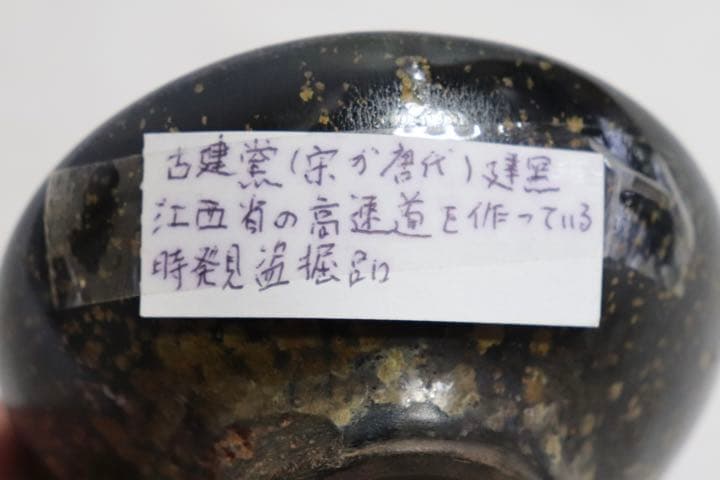 古建窯(宋か唐代)建黑
江西省の高速道を作っている
時発見盗掘品